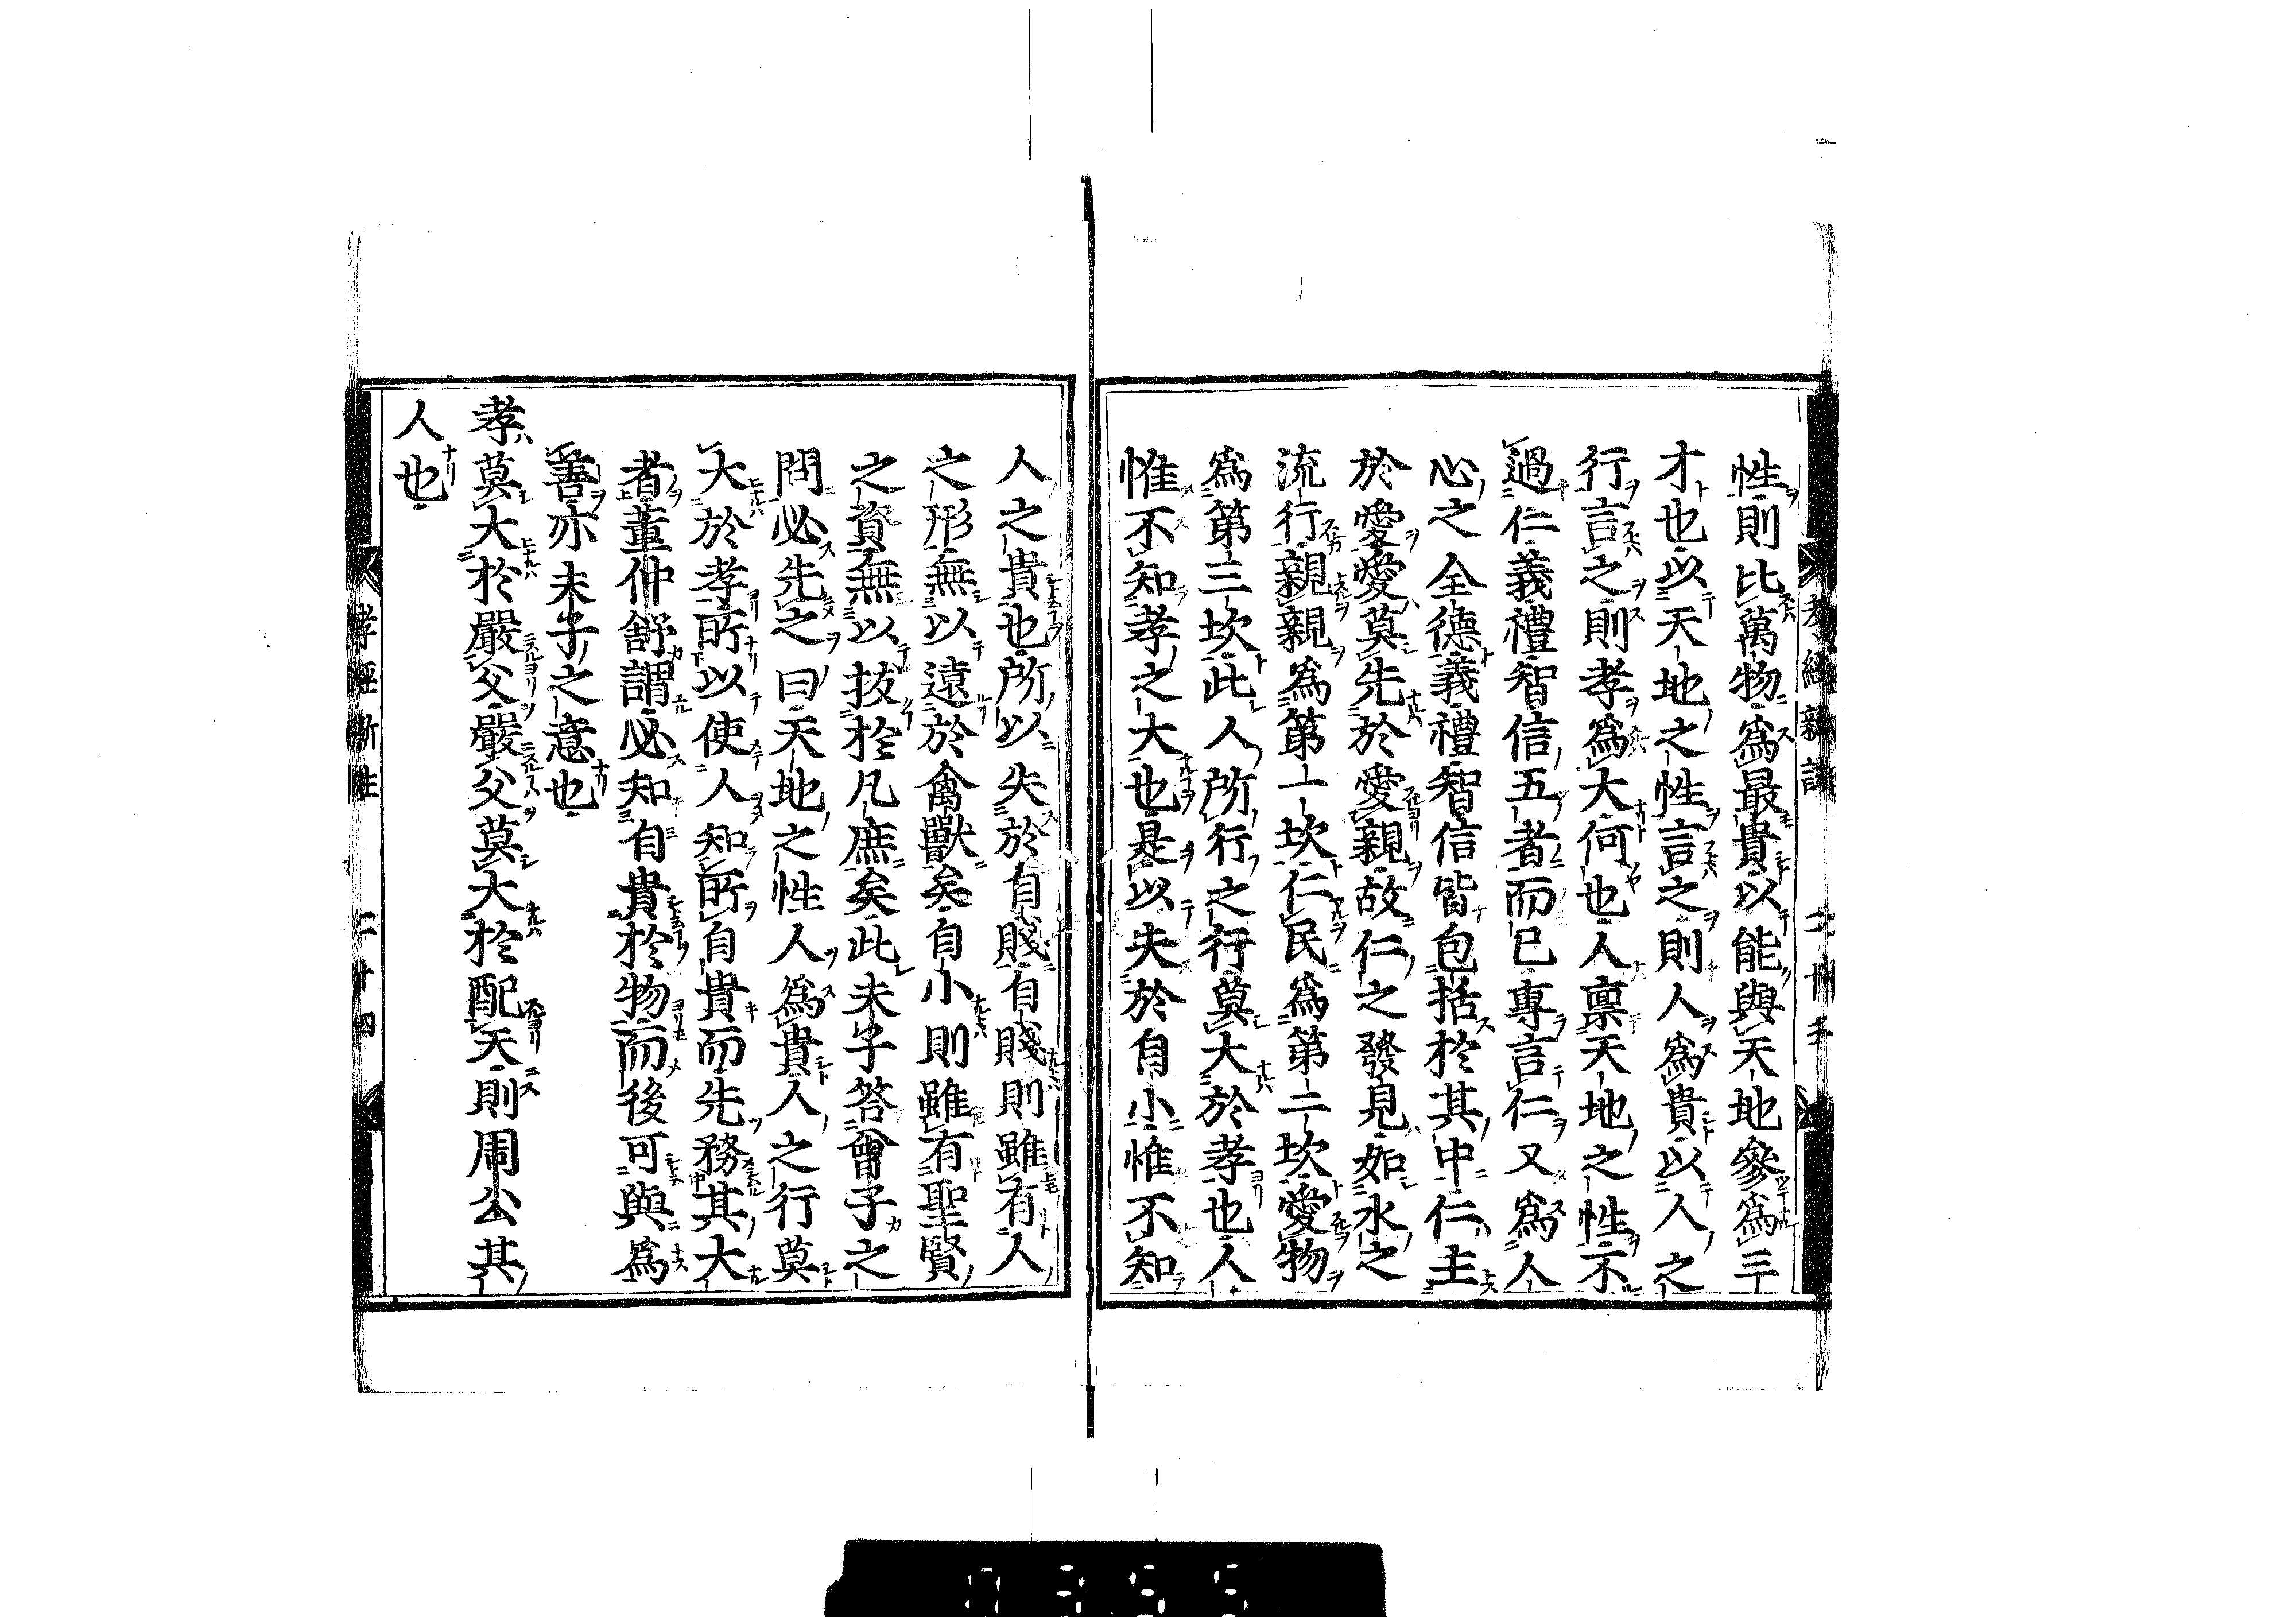 性則比萬物爲最貴以能與天地參爲三
才也以天地之性言之則人爲貴以人之
行言之則孝爲大何也人禀天地之性不
過仁義禮智信五者而已專言仁又爲人
心之全德義禮智信皆包括於其中仁主
於愛愛莫先於愛親故仁之發見如水之
流行親親爲第一坎仁民爲第二坎愛物
爲第三坎此人所行之行莫大於孝也人
惟不知孝之大也是以失於自小惟不知
人之貴也所以失於自賤自賤則雖有人
之形無以遠於禽獸矣自小則雖有聖賢
之資無以拔於凡庶矣此夫子答曾子之
問必先之曰天地之性人爲貴人之行莫
大於孝所以使人知所自貴而先務其大
者董仲舒謂必知自貴於物而後可與爲
善亦夫子之意也
孝莫大於嚴父嚴父莫大於配天則周公其
人也